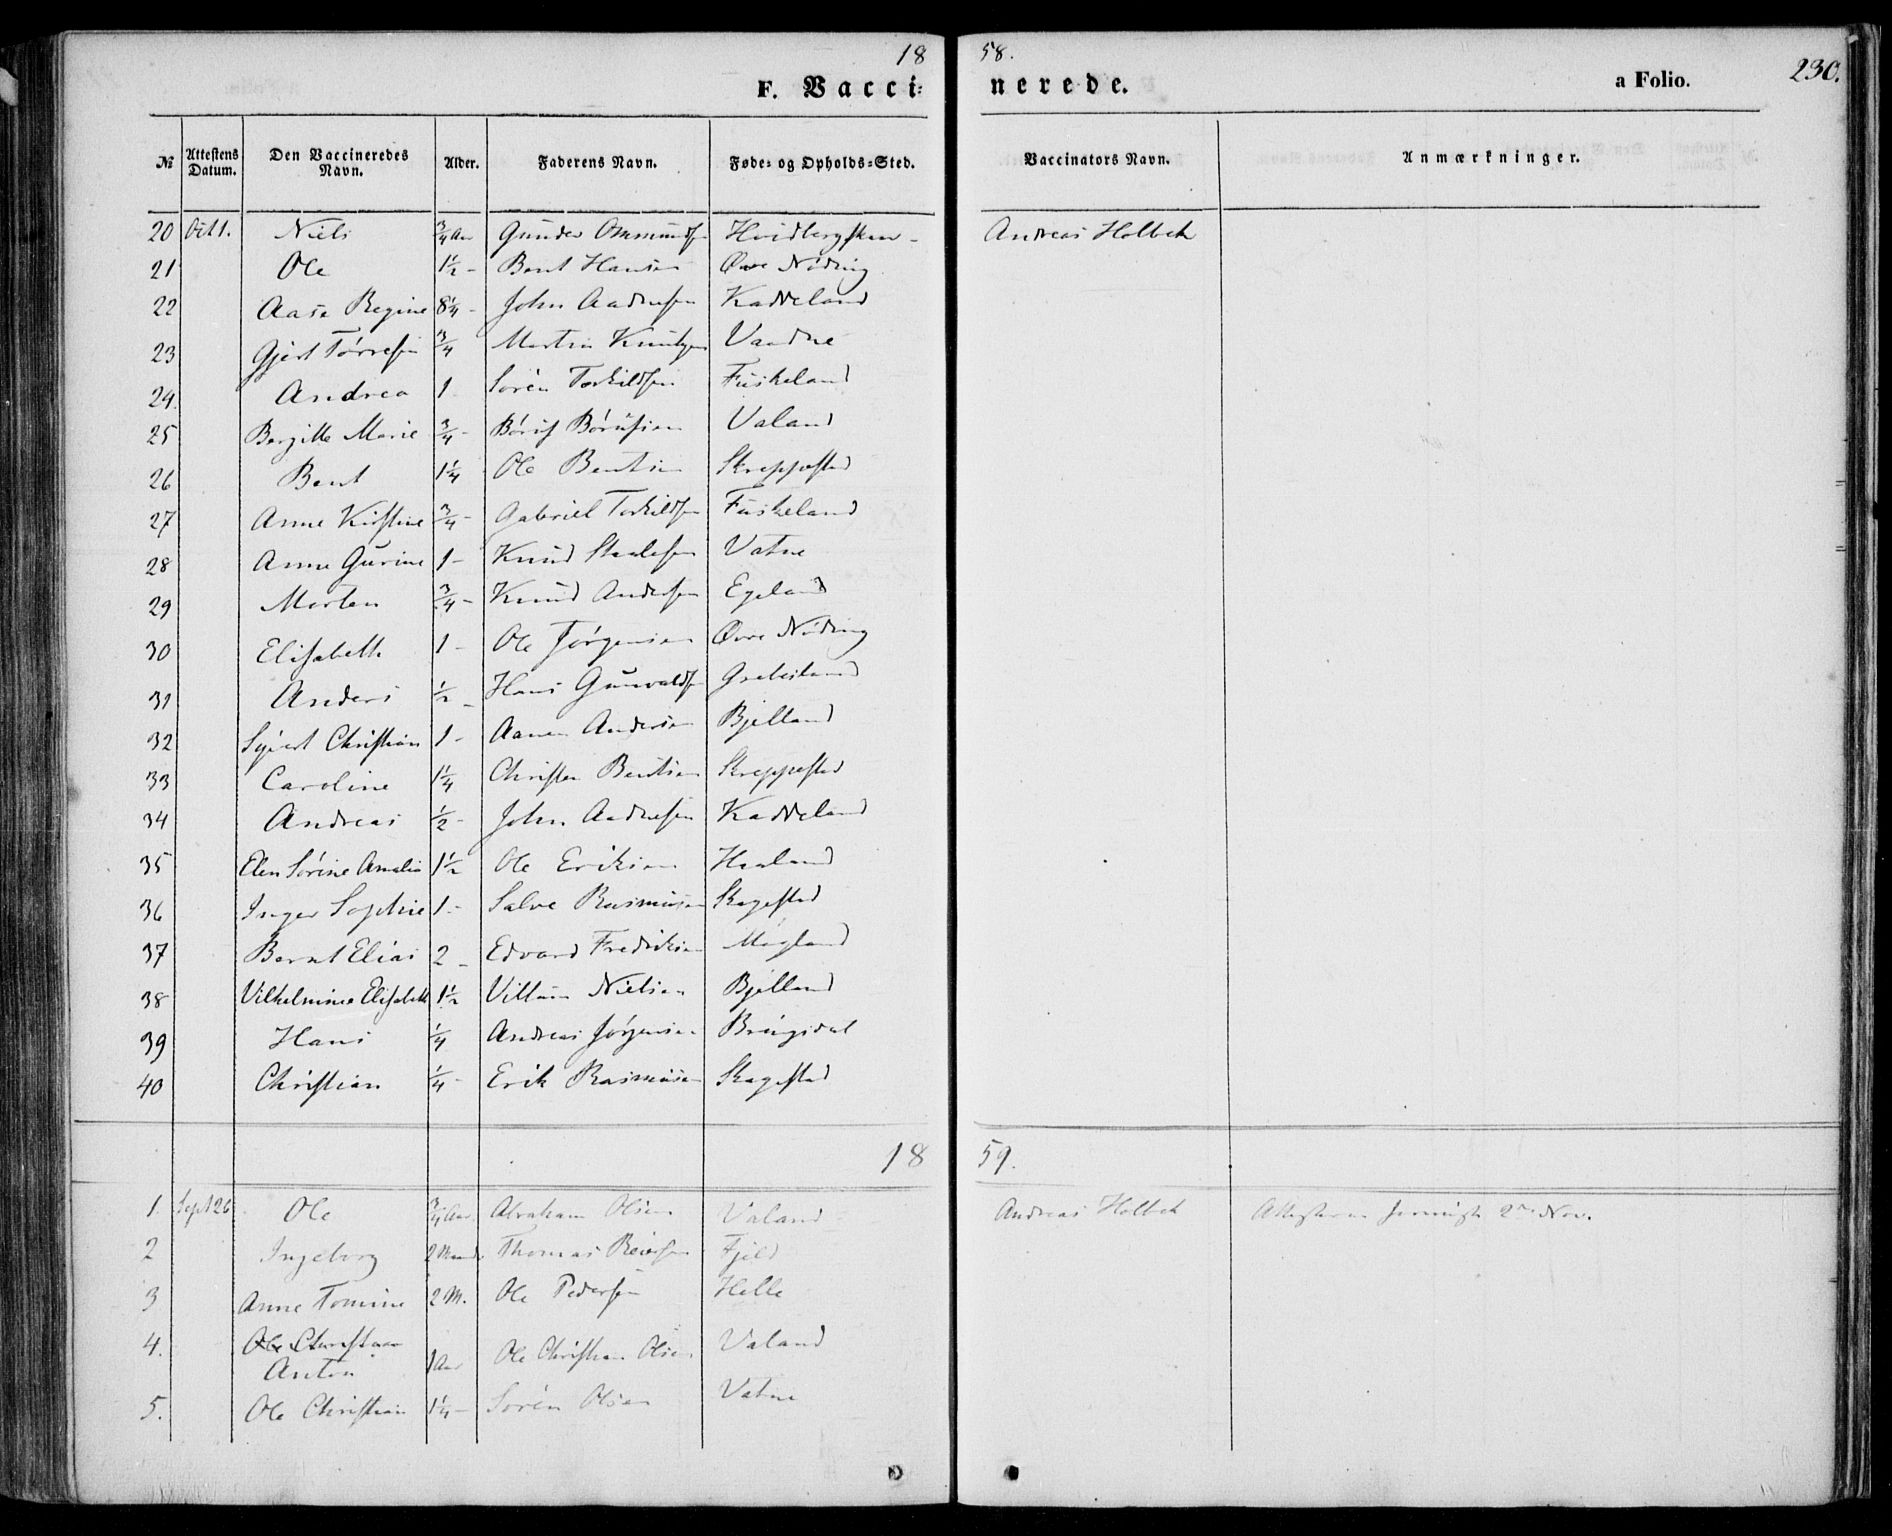 18 58.
F. Vaccinerede.
a Folio.
230.
№ Attestens Datum. Den Vaccineredes Navn. Alder. Faderens Navn. Føde- og Opholds-Sted. Vaccinators Navn. Anmærkninger.
20 Oct 1. Niels 3/4 Aar Gunder Ommundsen Andreas Holbek
21 Ole 1 1/2 - Bent Hansen Øvre Nøding
22 Aase Regine 8 1/4 - John Aadnesen Kaddeland
23 Gjert Tørresen 3/4 Martin Knutsen Vaadne
24. Andrea 1 Sørén Torkildsen Fuskeland
25 Bergitte Marie 3/4 - Børuf Børufsen Valand
26 Bent 1 1/4 Ole Bentsen Skreppestad
27 Anne Kirstine 3/4 - Gabriel Torkildsen Fuskeland
28 Anne Gurine 1 - Knud Staalesen Vatne
29 Morten 3/4 - Knud Andersen Egeland
30 Elisabeth 1 - Ole Jørgensen Øvre Nøding
31 Anders 1/2 - Hans Gunvaldsen
32 Sijvert Christian 1 - Aanen Andersen Bjelland
33 Caroline 1 1/4 Christen Bentsen Skreppestad
34 Andreas 1/2 - John Aadnesen Kaddeland
35 Elen Sørine Amalia 1 1/2 Ole Eriksen Haaland
36 Inger Sophie 1 - Salve Rasmusen Skagestad
37 Bernt Elias 2 - Edvard Fredriksen Møgland
38 Vilhelmine Elisabeth 1 1/2 Villum Nielsen Bjelland
39 Hans 1/4 Andreas Jørgensen Bringsdal
40 Christian 1/4 - Erik Rasmusen Skagestad
18 59.
1. Sept 26. Ole 3/4 Aar. Abraham Olsen Valand Andreas Holbek 2den Nov.
2 Ingeborg 2 Maand. Thomas Reiersen Fjeld
3 Anne Tomine 2 M. Ole Pedersen Helle
4. Ole Christian
Anton 1 Aar Ole Christian Olsen Valand
5. Ole Christian 1 1/4 - Sørén Olsen Vatne